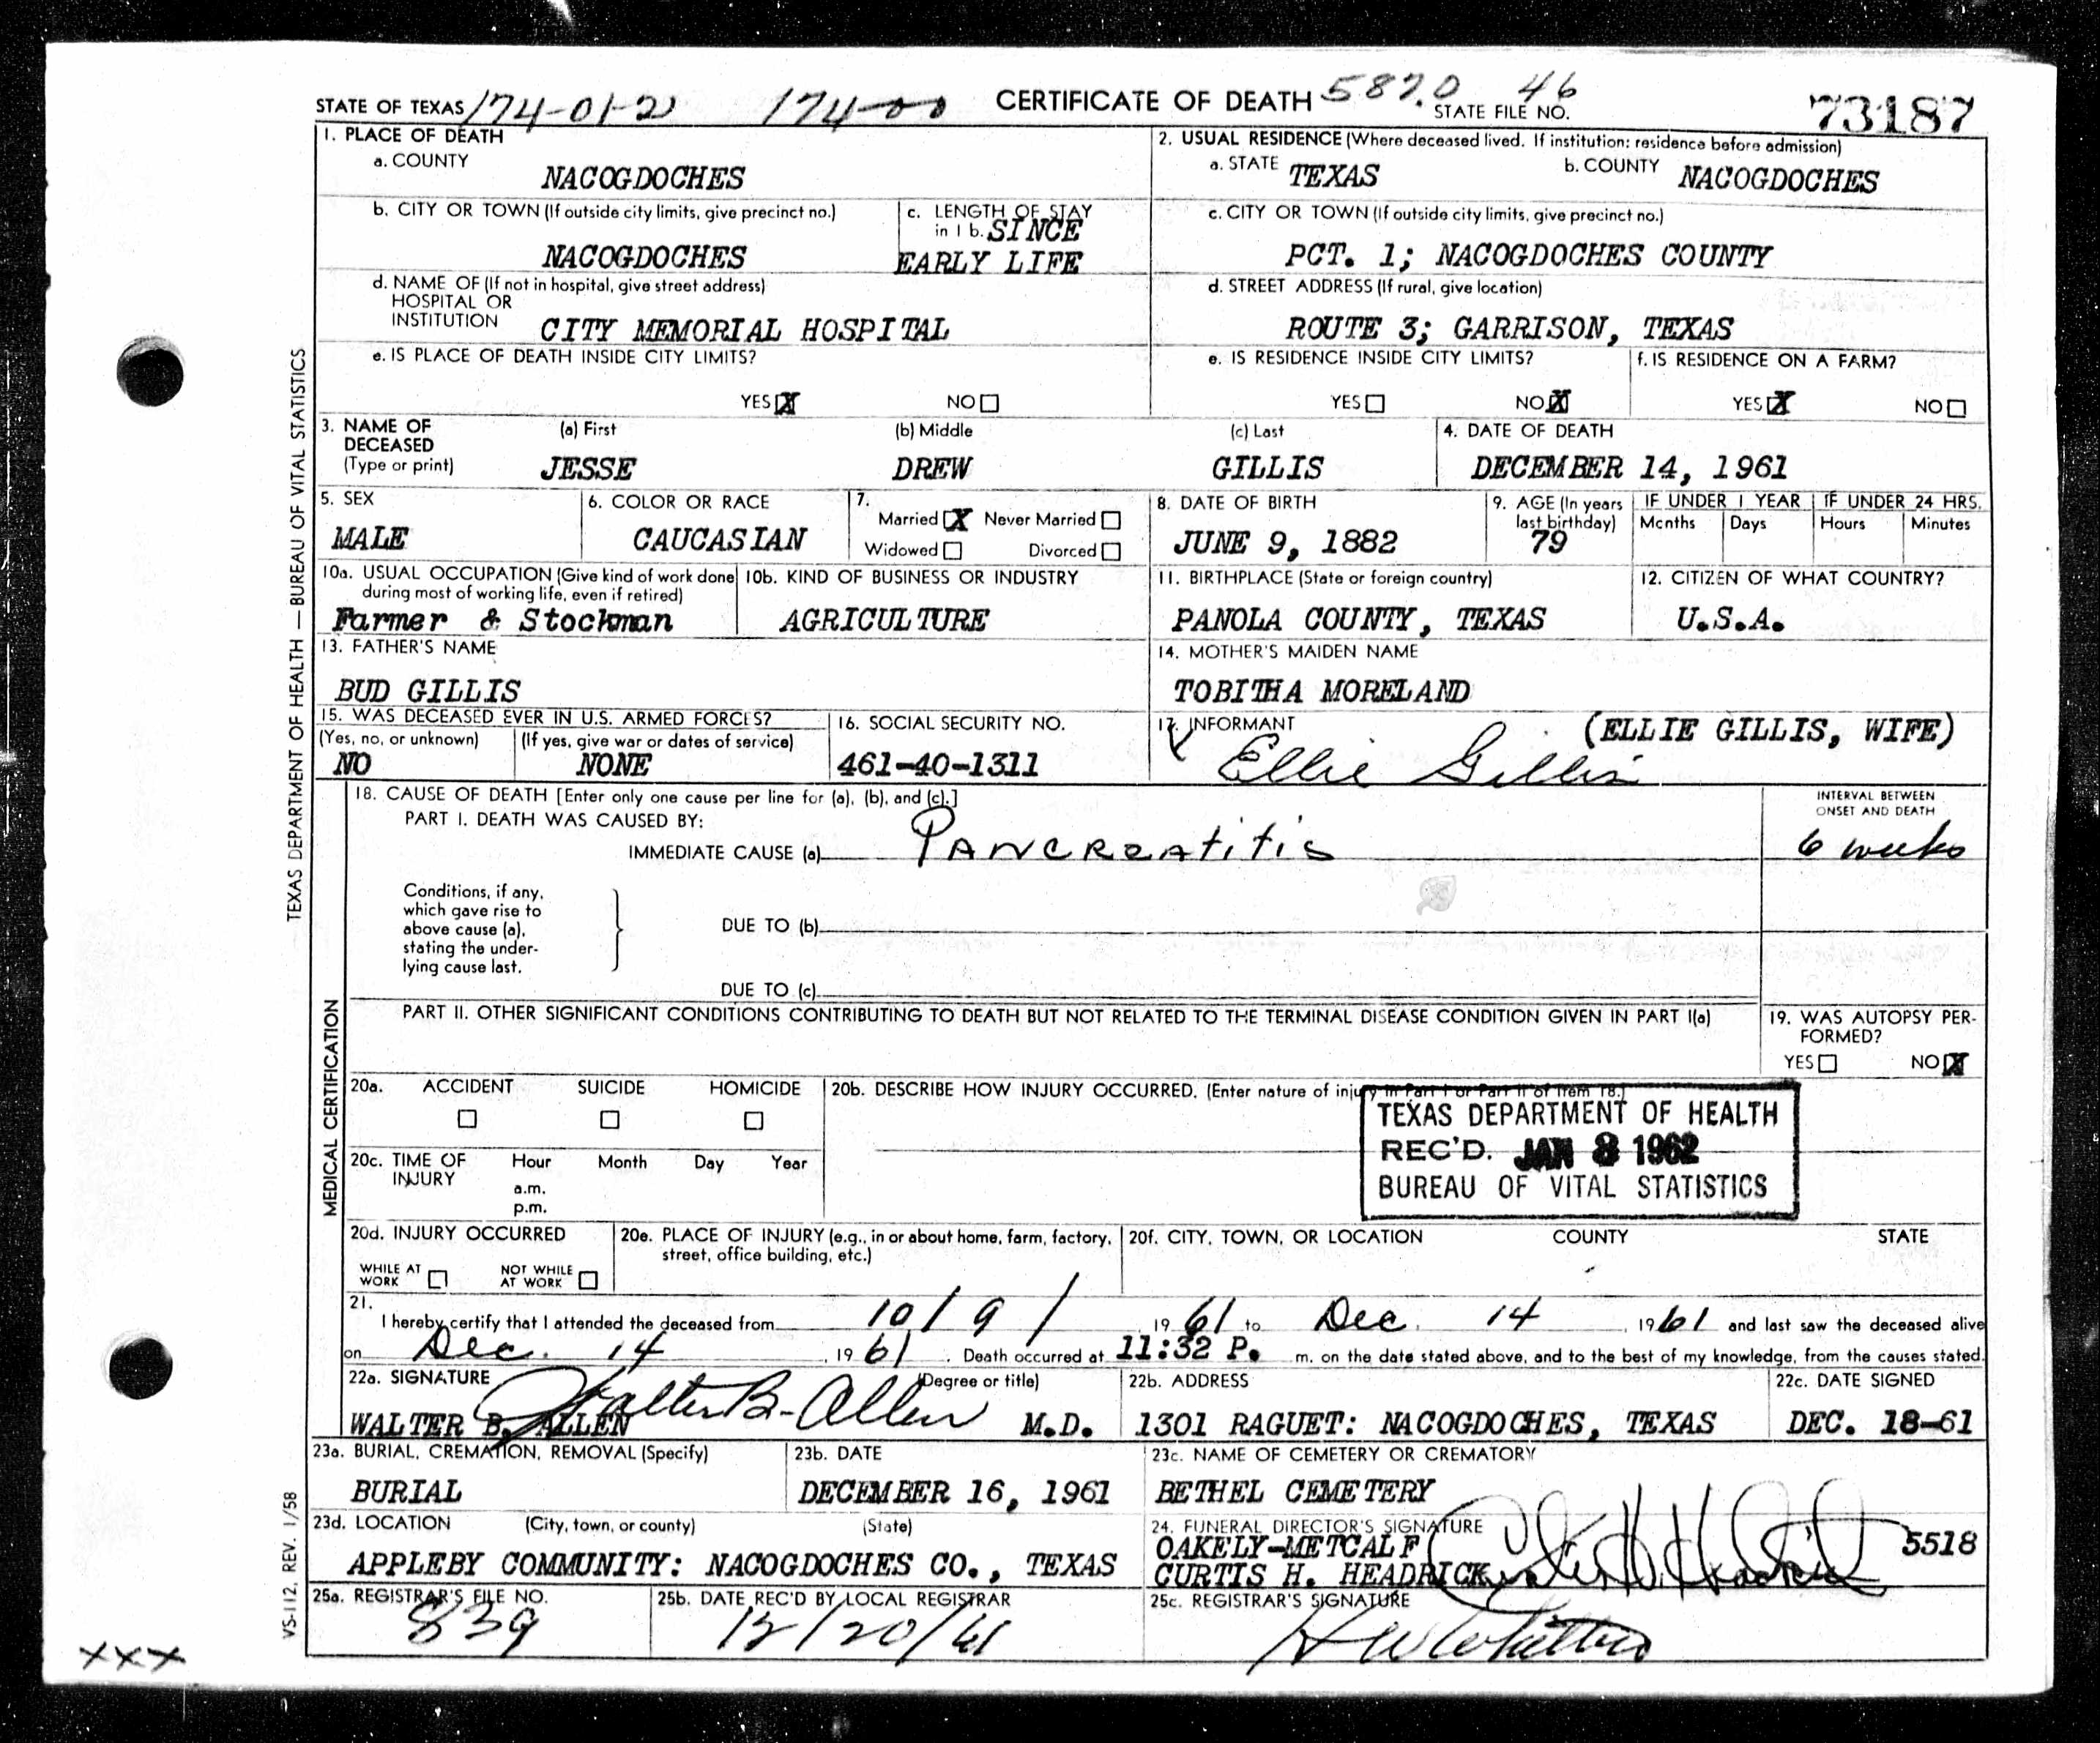 STATE OF TEXAS 174-01-21 174-00 CERTIFICATE OF DEATH 587.0 46 STATE FILE NO. 73187
1. PLACE OF DEATH
a. COUNTY
NACOGDOCHES
2. USUAL RESIDENCE (Where deceased lived. If institution: residence before admission)
a. STATE TEXAS b. COUNTY NACOGDOCHES
b. CITY OR TOWN (If outside city limits, give precinct no.)
NACOGDOCHES
c. LENGTH OF STAY
in 1 b. SINCE
EARLY LIFE
c. CITY OR TOWN (If outside city limits, give precinct no.)
PCT. 1; NACOGDOCHES COUNTY
d. NAME OF (If not in hospital, give street address)
HOSPITAL OR
INSTITUTION CITY MEMORIAL HOSPITAL
d. STREET ADDRESS (If rural, give location)
ROUTE 3; GARRISON, TEXAS
e. IS PLACE OF DEATH INSIDE CITY LIMITS?
YES X NO
e. IS RESIDENCE INSIDE CITY LIMITS?
YES NO X
f. IS RESIDENCE ON A FARM?
YES X NO
3. NAME OF
DECEASED
(Type or print)
(a) First (b) Middle (c) Last
JESSE DREW GILLIS
4. DATE OF DEATH
DECEMBER 14, 1961
5. SEX
MALE
6. COLOR OR RACE
CAUCASIAN
7.
Married X Never Married
Widowed Divorced
8. DATE OF BIRTH
JUNE 9, 1882
9. AGE (In years
last birthday)
79
IF UNDER 1 YEAR
Months Days
IF UNDER 24 HRS.
Hours Minutes
10a. USUAL OCCUPATION (Give kind of work done
during most of working life, even if retired)
Farmer & Stockman
10b. KIND OF BUSINESS OR INDUSTRY
AGRICULTURE
11. BIRTHPLACE (State or foreign country)
PANOLA COUNTY, TEXAS
12. CITIZEN OF WHAT COUNTRY?
U.S.A.
13. FATHER'S NAME
BUD GILLIS
14. MOTHER'S MAIDEN NAME
TOBITHA MORELAND
15. WAS DECEASED EVER IN U.S. ARMED FORCES?
(Yes, no, or unknown) (If yes, give war or dates of service)
NO NONE
16. SOCIAL SECURITY NO.
461-40-1311
17. INFORMANT (ELLIE GILLIS, WIFE)
Ellie Gillis
18. CAUSE OF DEATH [Enter only one cause per line for (a), (b), and (c).]
PART I. DEATH WAS CAUSED BY:
IMMEDIATE CAUSE (a) Pancreatitis
INTERVAL BETWEEN
ONSET AND DEATH
6 weeks
Conditions, if any,
which gave rise to
above cause (a),
stating the under-
lying cause last.
DUE TO (b)
DUE TO (c)
PART II. OTHER SIGNIFICANT CONDITIONS CONTRIBUTING TO DEATH BUT NOT RELATED TO THE TERMINAL DISEASE CONDITION GIVEN IN PART I(a)
19. WAS AUTOPSY PER-
FORMED?
YES NO X
20a. ACCIDENT SUICIDE HOMICIDE
20b. DESCRIBE HOW INJURY OCCURRED. (Enter nature of injury in Part I or Part II of Item 18.)
TEXAS DEPARTMENT OF HEALTH
REC'D. JAN 8 1962
BUREAU OF VITAL STATISTICS
20c. TIME OF
INJURY
Hour Month Day Year
a.m.
p.m.
20d. INJURY OCCURRED
WHILE AT
WORK
NOT WHILE
AT WORK
20e. PLACE OF INJURY (e.g., in or about home, farm, factory,
street, office building, etc.)
20f. CITY, TOWN, OR LOCATION COUNTY STATE
21.
I hereby certify that I attended the deceased from 10/9/ 1961 to Dec. 14, 1961 and last saw the deceased alive
on Dec. 14, 1961. Death occurred at 11:32 P. m. on the date stated above, and to the best of my knowledge, from the causes stated.
22a. SIGNATURE (Degree or title)
Walter B. Allen
WALTER B. ALLEN M.D.
22b. ADDRESS
1301 RAGUET: NACOGDOCHES, TEXAS
22c. DATE SIGNED
DEC. 18-61
23a. BURIAL, CREMATION, REMOVAL (Specify)
BURIAL
23b. DATE
DECEMBER 16, 1961
23c. NAME OF CEMETERY OR CREMATORY
BETHEL CEMETERY
23d. LOCATION (City, town, or county) (State)
APPLEBY COMMUNITY: NACOGDOCHES CO., TEXAS
24. FUNERAL DIRECTOR'S SIGNATURE
OAKELY-METCALF
CURTIS H. HEADRICK Curtis H. Headrick 5518
25a. REGISTRAR'S FILE NO.
839
25b. DATE REC'D BY LOCAL REGISTRAR
12/20/61
25c. REGISTRAR'S SIGNATURE
TEXAS DEPARTMENT OF HEALTH — BUREAU OF VITAL STATISTICS
MEDICAL CERTIFICATION
VS-112, REV. 1/58
XXX